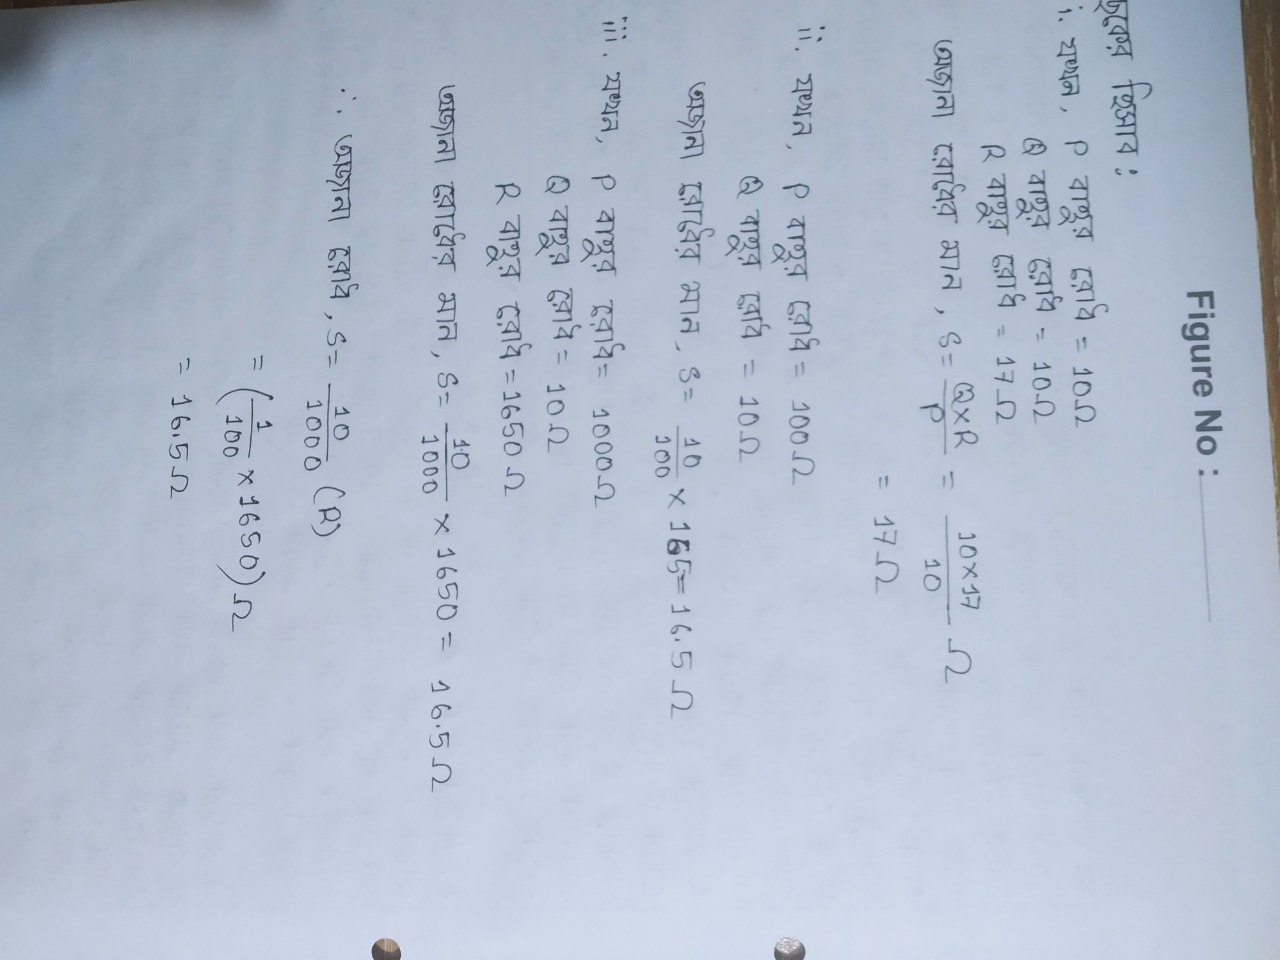 Figure No :
হিসাব :
i. যখন, P বাহুর রোধ = 10Ω
Q বাহুর রোধ = 10Ω
R বাহুর রোধ = 17Ω
অজানা রোধের মান, S = Q×R/P = 10×17/10 Ω
= 17Ω
ii. যখন, P বাহুর রোধ = 100Ω
Q বাহুর রোধ = 10Ω
অজানা রোধের মান, S = 10/100 × 165 = 16.5 Ω
iii. যখন, P বাহুর রোধ = 1000Ω
Q বাহুর রোধ = 10Ω
R বাহুর রোধ = 1650 Ω
অজানা রোধের মান, S = 10/1000 × 1650 = 16.5 Ω
∴ অজানা রোধ, S = 10/1000 (R)
= (1/100 × 1650) Ω
= 16.5 Ω